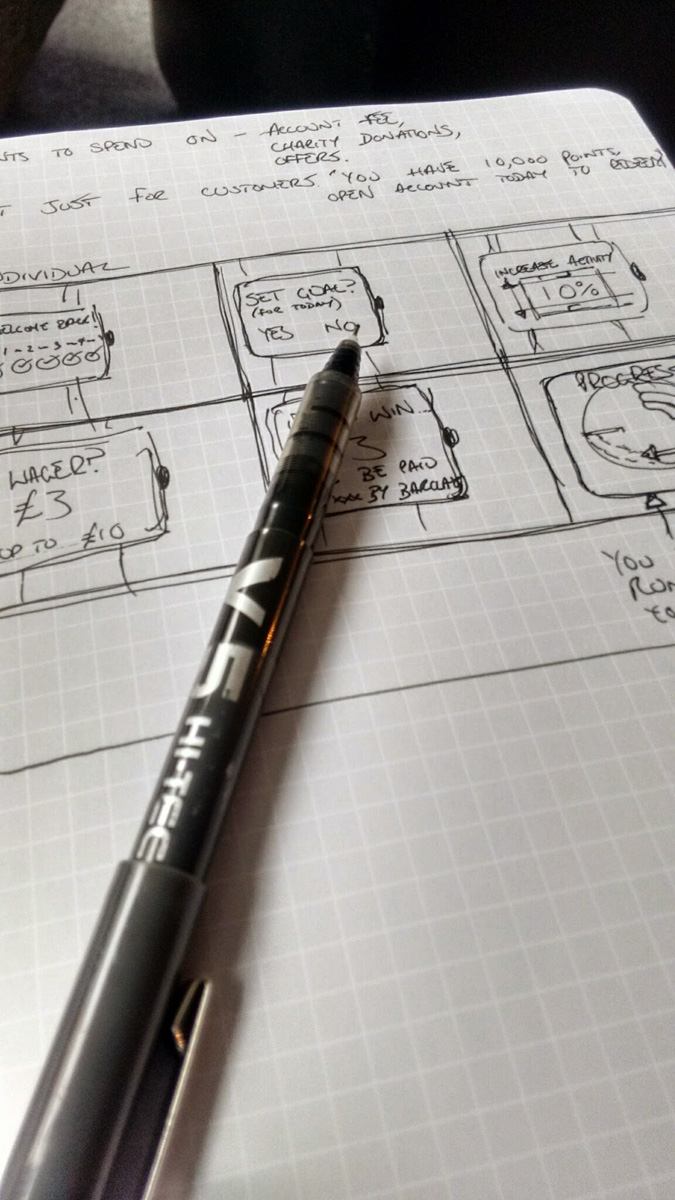 TS TO SPEND ON - ACCOUNT FEE,
CHARITY DONATIONS,
OFFERS.
T JUST FOR CUSTOMERS. "YOU HAVE 10,000 POINTS,
OPEN ACCOUNT TODAY TO REDEEM
DIVIDUAL
ELCOME BACK!
1-2-3-4-
SET GOAL?
(FOR TODAY)
YES NO
INCREASE ACTIVITY
10%
WAGER?
£3
UP TO £10
WIN...
3
BE PAID
xxx BY BARCLAYS
PROGRESS
YOU
RUN
YO
V5 HI-TEC